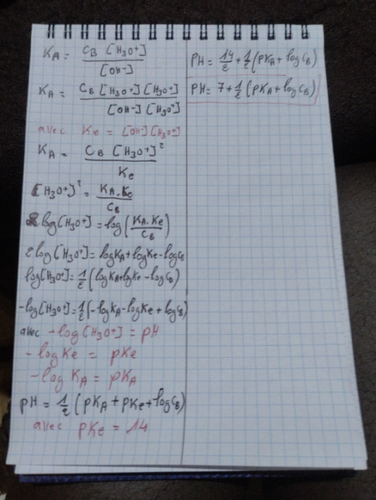 KA = CB [H3O+] / [OH-]
KA = CB [H3O+] [H3O+] / [OH-] [H3O+]
avec Ke = [OH-] [H3O+]
KA = CB [H3O+]² / Ke
[H3O+]² = KA.Ke / CB
log[H3O+]² = log(KA.Ke / CB)
2log[H3O+] = logKA + logKe - logCB
log[H3O+] = 1/2 (logKA + logKe - logCB)
-log[H3O+] = 1/2 (-logKA - logKe + logCB)
avec -log[H3O+] = pH
-logKe = pKe
-logKA = pKA
pH = 1/2 (pKA + pKe + logCB)
avec pKe = 14
PH = 14/2 + 1/2 (pKA + logCB)
PH = 7 + 1/2 (pKA + logCB)